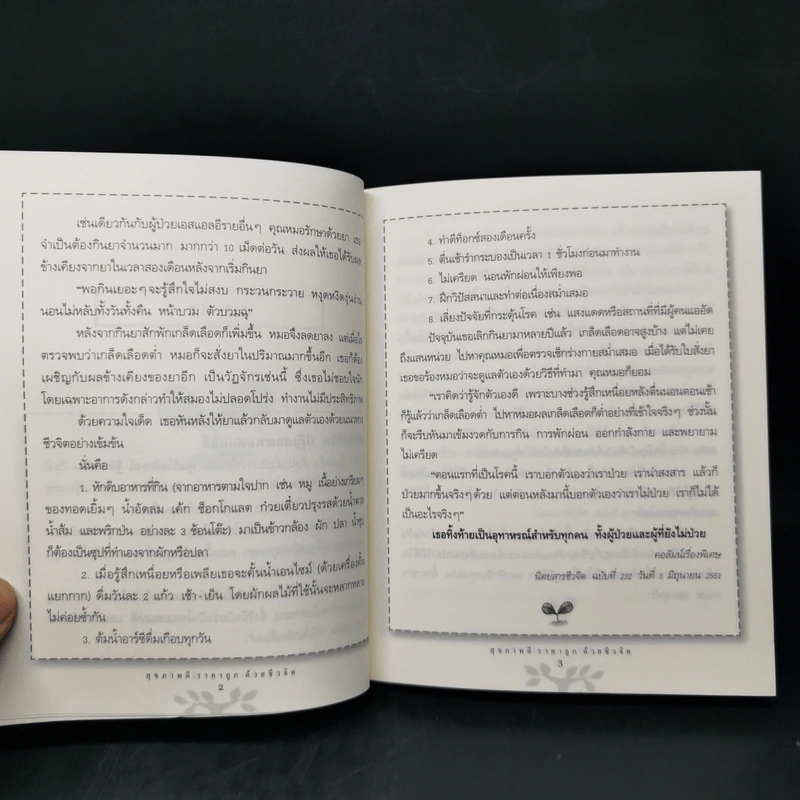 เช่นเดียวกันกับผู้ป่วยเอสแอลอีรายอื่นๆ คุณหมอรักษาด้วยยา เธอ
จำเป็นต้องกินยาจำนวนมาก มากกว่า 10 เม็ดต่อวัน ส่งผลให้เธอได้รับผล
ข้างเคียงจากยาในเวลาสองเดือนหลังจากเริ่มกินยา
"พอกินเยอะๆ จะรู้สึกใจไม่สงบ กระวนกระวาย หงุดหงิดงุ่นง่าน
นอนไม่หลับทั้งวันทั้งคืน หน้าบวม ตัวบวมฉุ"
หลังจากกินยาสักพักเกล็ดเลือดก็เพิ่มขึ้น หมอจึงลดยาลง แต่เมื่อไร
ตรวจพบว่าเกล็ดเลือดต่ำ หมอก็จะสั่งยาในปริมาณมากขึ้นอีก เธอก็ต้อง
เผชิญกับผลข้างเคียงของยาอีก เป็นวัฏจักรเช่นนี้ ซึ่งเธอไม่ชอบใจนัก
โดยเฉพาะอาการดังกล่าวทำให้สมองไม่ปลอดโปร่ง ทำงานไม่มีประสิทธิภาพ
ด้วยความใจเด็ด เธอหันหลังให้ยาแล้วกลับมาดูแลตัวเองด้วยแนวทาง
ชีวจิตอย่างเข้มข้น
นั่นคือ
1. หักดิบอาหารที่กิน (จากอาหารตามใจปาก เช่น หมู เนื้อย่างเกรียมๆ
ของทอดเยิ้มๆ น้ำอัดลม เค้ก ช็อกโกแลต ก๋วยเตี๋ยวปรุงรสด้วยน้ำตาล
น้ำส้ม และพริกป่น อย่างละ 3 ช้อนโต๊ะ) มาเป็นข้าวกล้อง ผัก ปลา น้ำซุป
ก็ต้องเป็นซุปที่ทำเองจากผักหรือปลา
2. เมื่อรู้สึกเหนื่อยหรือเพลียเธอจะคั้นน้ำเอนไซม์ (ด้วยเครื่องคั้น
แยกกาก) ดื่มวันละ 2 แก้ว เช้า-เย็น โดยผักผลไม้ที่ใช้นั้นจะหลากหลาย
ไม่ค่อยซ้ำกัน
3. ต้มน้ำอาร์ซีดื่มเกือบทุกวัน
สุขภาพดี ราคาถูก ด้วยชีวจิต
2
4. ทำดีท็อกซ์สองเดือนครั้ง
5. ตื่นเช้ารำกระบองเป็นเวลา 1 ชั่วโมงก่อนมาทำงาน
6. ไม่เครียด นอนพักผ่อนให้เพียงพอ
7. ฝึกวิปัสสนาและทำต่อเนื่องสม่ำเสมอ
8. เลี่ยงปัจจัยที่กระตุ้นโรค เช่น แสงแดดหรือสถานที่ที่มีผู้คนแออัด
ปัจจุบันเธอเลิกกินยามาหลายปีแล้ว เกล็ดเลือดอาจสูงบ้าง แต่ไม่เคย
ถึงแสนหน่วย ไปหาคุณหมอเพื่อตรวจเช็กร่างกายสม่ำเสมอ เมื่อได้รับใบสั่งยา
เธอขอร้องหมอว่าจะดูแลตัวเองด้วยวิธีที่ทำมา คุณหมอก็ยอม
"เราคิดว่ารู้จักตัวเองดี เพราะบางช่วงรู้สึกเหนื่อยหลังตื่นนอนตอนเช้า
ก็รู้แล้วว่าเกล็ดเลือดต่ำ ไปหาหมอผลเกล็ดเลือดก็ต่ำอย่างที่เข้าใจจริงๆ ช่วงนั้น
ก็จะรีบหันมาเข้มงวดกับการกิน การพักผ่อน ออกกำลังกาย และพยายาม
ไม่เครียด
"ตอนแรกที่เป็นโรคนี้ เราบอกตัวเองว่าเราป่วย เราน่าสงสาร แล้วก็
ป่วยมากขึ้นจริงๆ ด้วย แต่ตอนหลังมานี้บอกตัวเองว่าเราไม่ป่วย เราก็ไม่ได้
เป็นอะไรจริงๆ"
เธอทิ้งท้ายเป็นอุทาหรณ์สำหรับทุกคน ทั้งผู้ป่วยและผู้ที่ยังไม่ป่วย
คอลัมน์เรื่องพิเศษ
นิตยสารชีวจิต ฉบับที่ 232 วันที่ 1 มิถุนายน 2551
สุขภาพดี ราคาถูก ด้วยชีวจิต
3